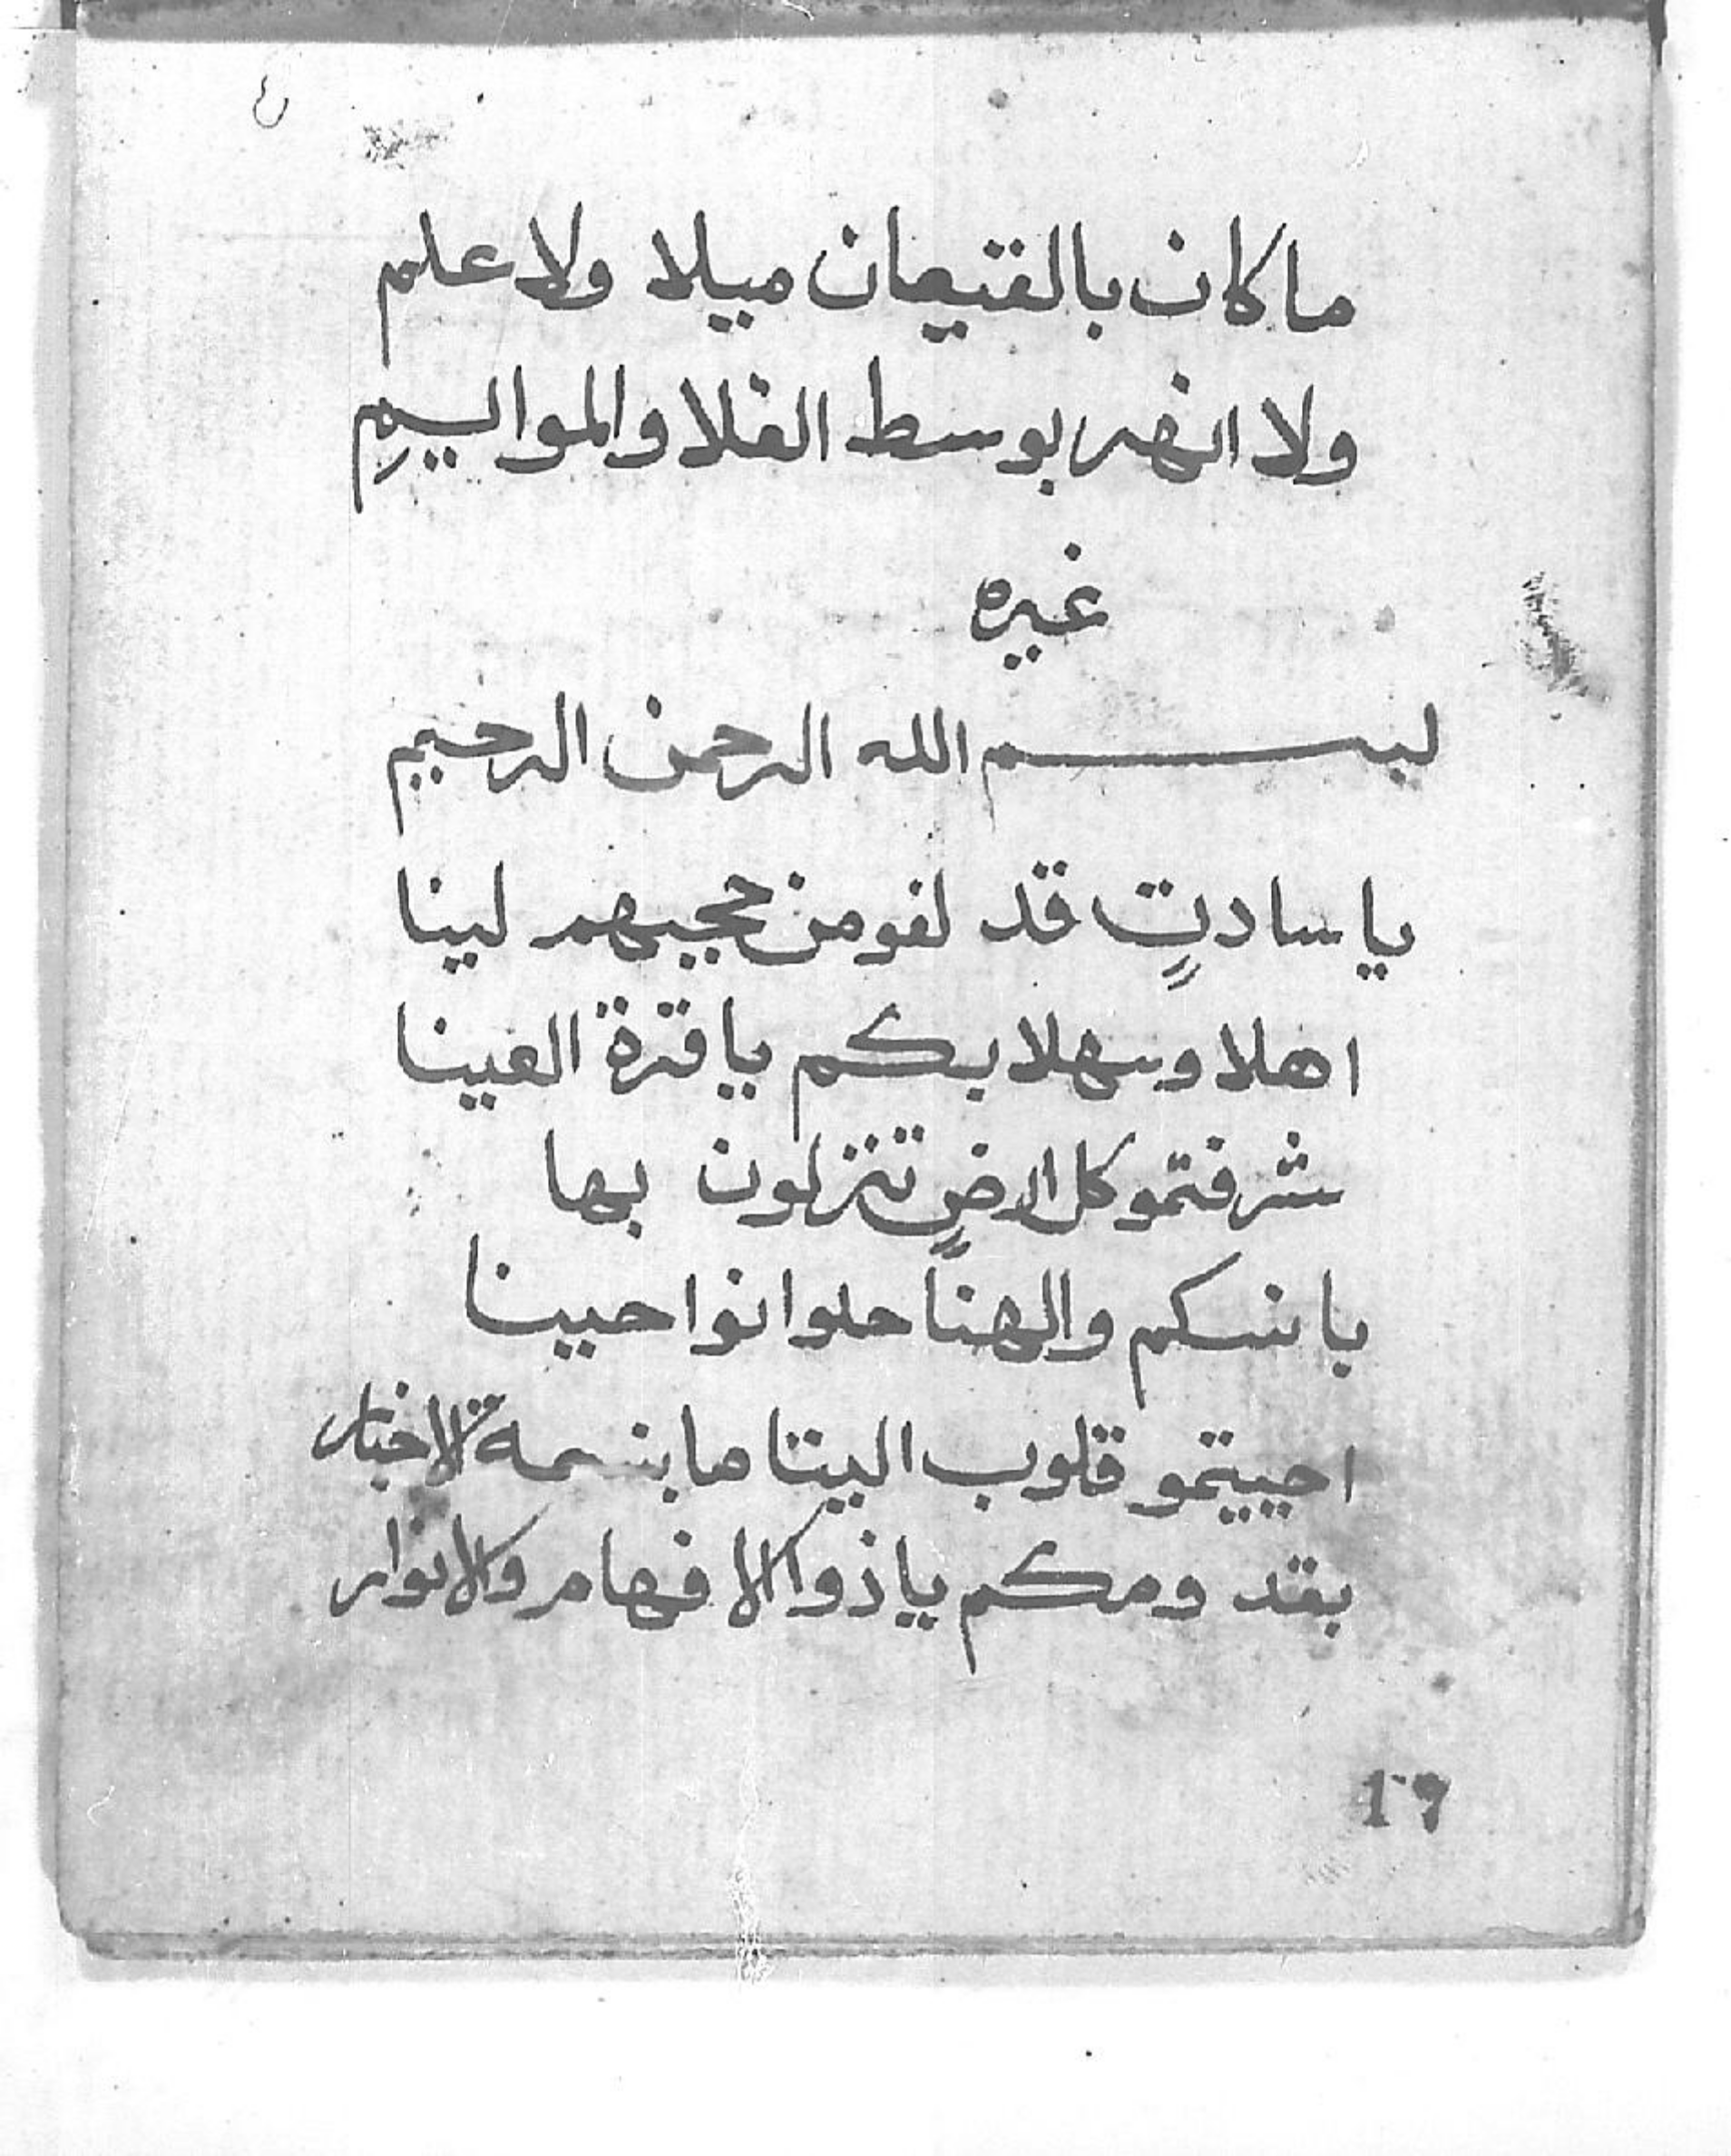 ما كان بالقيعان ميلا ولا علم
ولا انهر بوسط الفلا والمواليم
غيره
بسم الله الرحمن الرحيم
يا سادتٍ قد لفو من حجبهم لينا
اهلا وسهلا بكم يا قرة العينا
شرفتمو كل ارضٍ تنزلون بها
بانسكم والهناً حلوا نواحينا
احييتمو قلوب اليتاما بنسمة الاخبار
بقدومكم يا ذوا الافهام والانوار
19